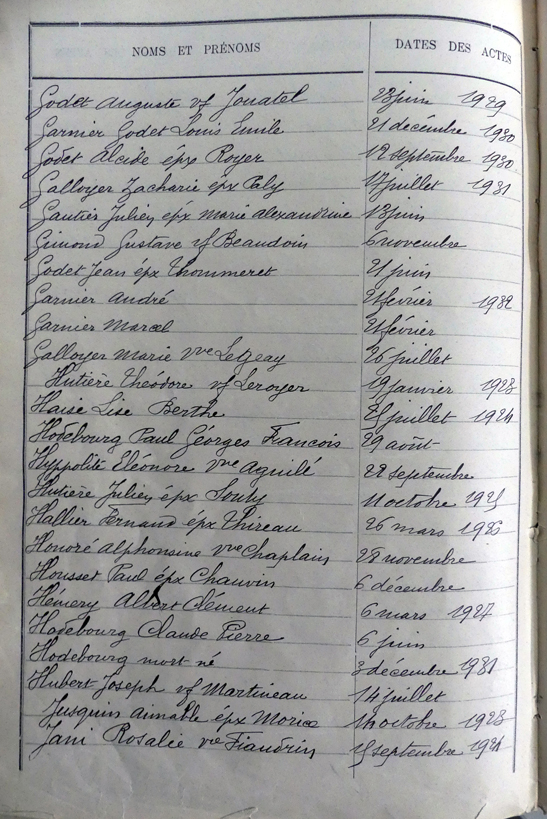 NOMS ET PRÉNOMS DATES DES ACTES
Godet Auguste vf Jouatel 28 juin 1929
Garnier Godet Louis Emile 21 décembre 1930
Godet Alcide épx Royer 12 septembre 1930
Galloyer Zacharie épx Paly 17 juillet 1931
Gautier Julien épx Marie Alexandrine 13 juin
Gimond Gustave vf Beaudoin 6 novembre
Godet Jean épx Thommeret 21 juin
Garnier André 2 février 1932
Garnier Marcel 2 février
Galloyer Marie vve Legeay 26 juillet
Hutière Théodore vf Leroyer 19 janvier 1923
Haise Lise Berthe juillet 1924
Hodebourg Paul Géorges Francois 29 août
Hyppolite Eléonore vve Aguilé 22 septembre
Hutière Julien épx Souty 11 octobre 1925
Hallier Fernand épx Thireau 26 mars 1926
Honoré Alphonsine vve Chaplain 28 novembre
Housset Paul épx Chauvin 6 décembre
Hémery Albert Clément 6 mars 1927
Hodebourg Claude Pierre 6 juin
Hodebourg mort-né 3 décembre 1931
Hubert Joseph vf Martineau 14 juillet
Jusquin Aimable épx Morice 14 octobre 1923
Jani Rosalie vve Fiandrin 15 septembre 1924